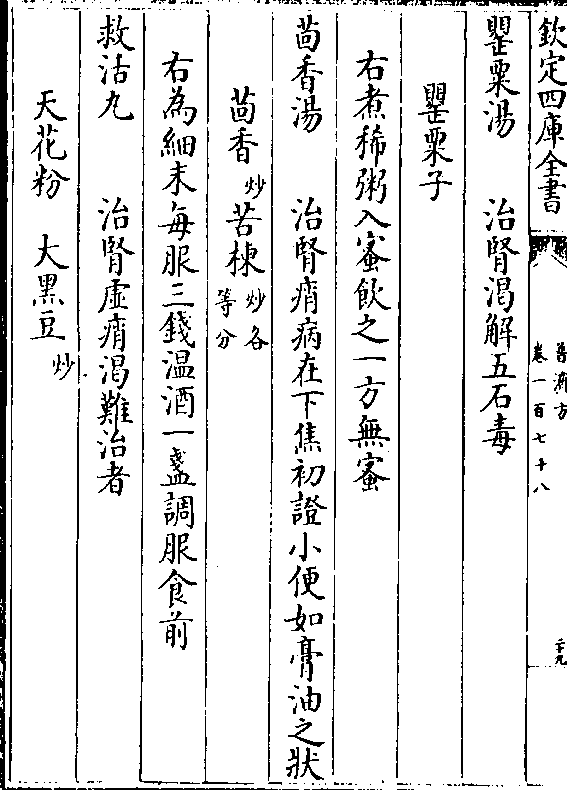 欽定四庫全書
普濟方
卷一百七十八
二十九
罌粟湯 治腎渴解五石毒
罌粟子
右煮稀粥入蜜飲之一方無蜜
茴香湯 治腎痟病在下焦初證小便如膏油之狀
茴香炒 苦楝炒各等分
右為細末每服三錢温酒一盞調服食前
救沽丸 治腎虛痟渴難治者
天花粉 大黑豆炒